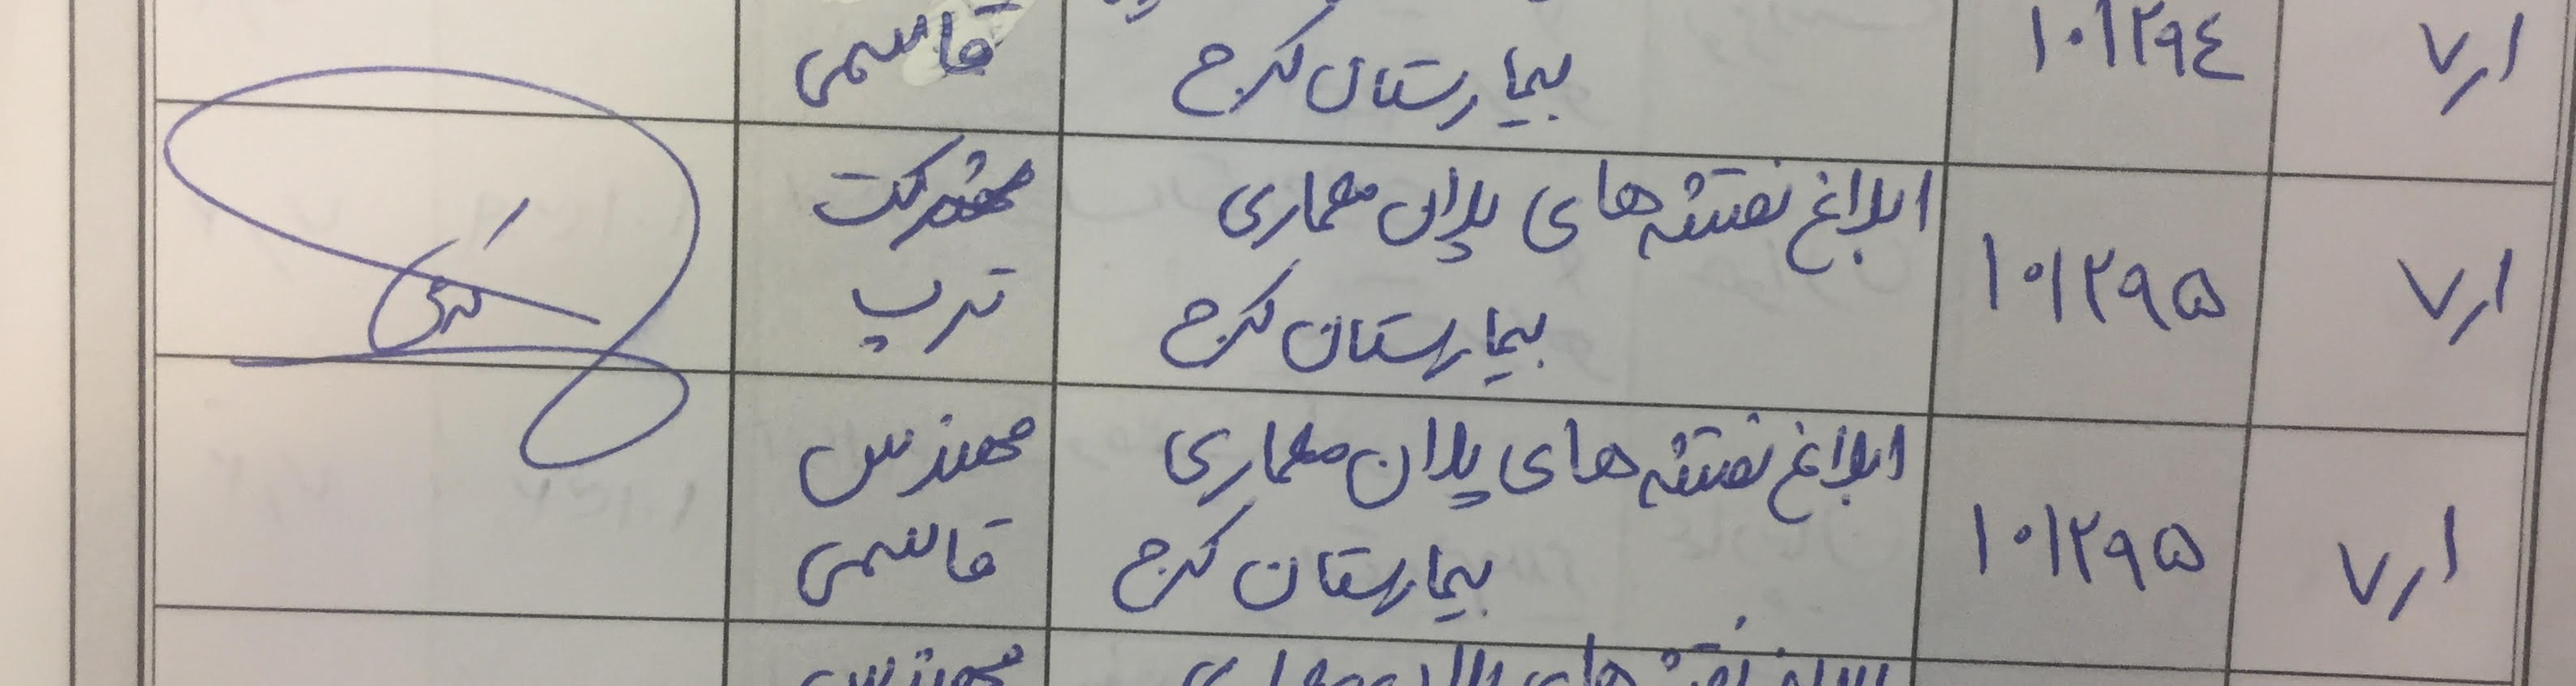 ۷٫۱
۱۰۱۲۹۴
بیمارستان کرج
قاسمی
۷٫۱
۱۰۱۲۹۵
ابلاغ نقشه های پلان معماری
بیمارستان کرج
شرکت
ترپ
۷٫۱
۱۰۱۲۹۵
ابلاغ نقشه های پلان معماری
بیمارستان کرج
مهندس
قاسمی
ابلاغ نقشه های پلان معماری
مهندس